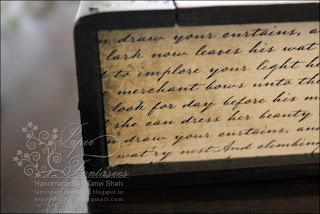 draw your curtains, a
lark now leaves his wat
to implore your light he
merchant bows unto th
look for day before his m
she can dress her beauty
draw your curtains, and
wat'ry nest And climbing
Paper
Fantasies
Handmade By: Tanvi Shah